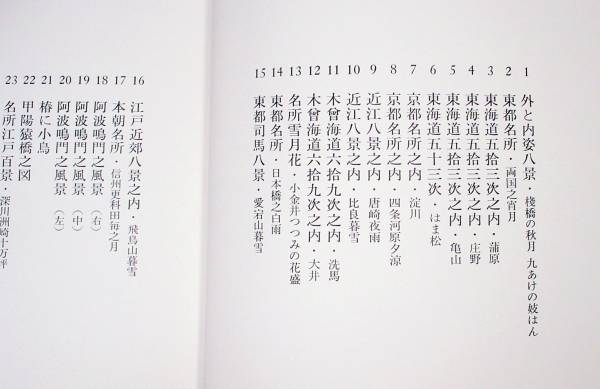 1 外と内姿八景・桟橋の秋月 九あけの妓はん
2 東都名所・両国之宵月
3 東海道五拾三次之内・蒲原
4 東海道五拾三次之内・庄野
5 東海道五拾三次之内・亀山
6 東海道五十三次・はま松
7 京都名所之内・淀川
8 京都名所之内・四条河原夕涼
9 近江八景之内・唐崎夜雨
10 近江八景之内・比良暮雪
11 木曾海道六拾九次之内・洗馬
12 木曾海道六拾九次之内・大井
13 名所雪月花・小金井つつみの花盛
14 東都名所・日本橋之白雨
15 東都司馬八景・愛宕山暮雪
16 江戸近郊八景之内・飛鳥山暮雪
17 本朝名所・信州更科田毎之月
18 阿波鳴門之風景（右）
19 阿波鳴門之風景（中）
20 阿波鳴門之風景（左）
21 椿に小鳥
22 甲陽猿橋之図
23 名所江戸百景・深川洲崎十万坪